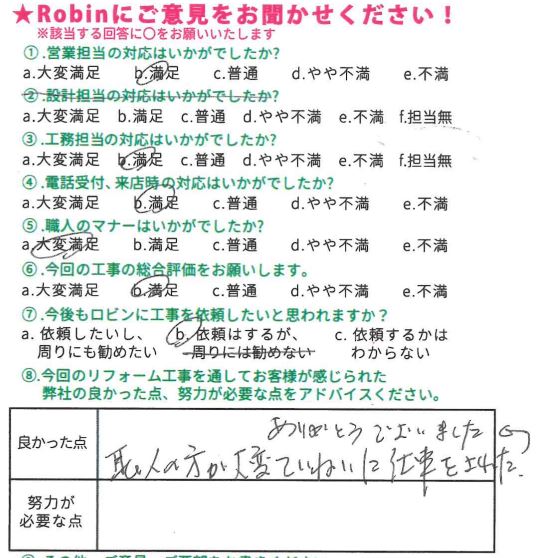 ★Robinにご意見をお聞かせください！
※該当する回答に〇をお願いいたします
①.営業担当の対応はいかがでしたか?
a.大変満足 b.満足 c.普通 d.やや不満 e.不満
②.設計担当の対応はいかがでしたか?
a.大変満足 b.満足 c.普通 d.やや不満 e.不満 f.担当無
③.工務担当の対応はいかがでしたか?
a.大変満足 b.満足 c.普通 d.やや不満 e.不満 f.担当無
④.電話受付、来店時の対応はいかがでしたか?
a.大変満足 b.満足 c.普通 d.やや不満 e.不満
⑤.職人のマナーはいかがでしたか?
a.大変満足 b.満足 c.普通 d.やや不満 e.不満
⑥.今回の工事の総合評価をお願いします。
a.大変満足 b.満足 c.普通 d.やや不満 e.不満
⑦.今後もロビンに工事を依頼したいと思われますか？
a. 依頼したいし、 b. 依頼はするが、 c. 依頼するかは
周りにも勧めたい 周りには勧めない わからない
⑧.今回のリフォーム工事を通してお客様が感じられた
弊社の良かった点、努力が必要な点をアドバイスください。
良かった点
ありがとうございました
職人の方が大変ていねいに仕事をされた.
努力が
必要な点